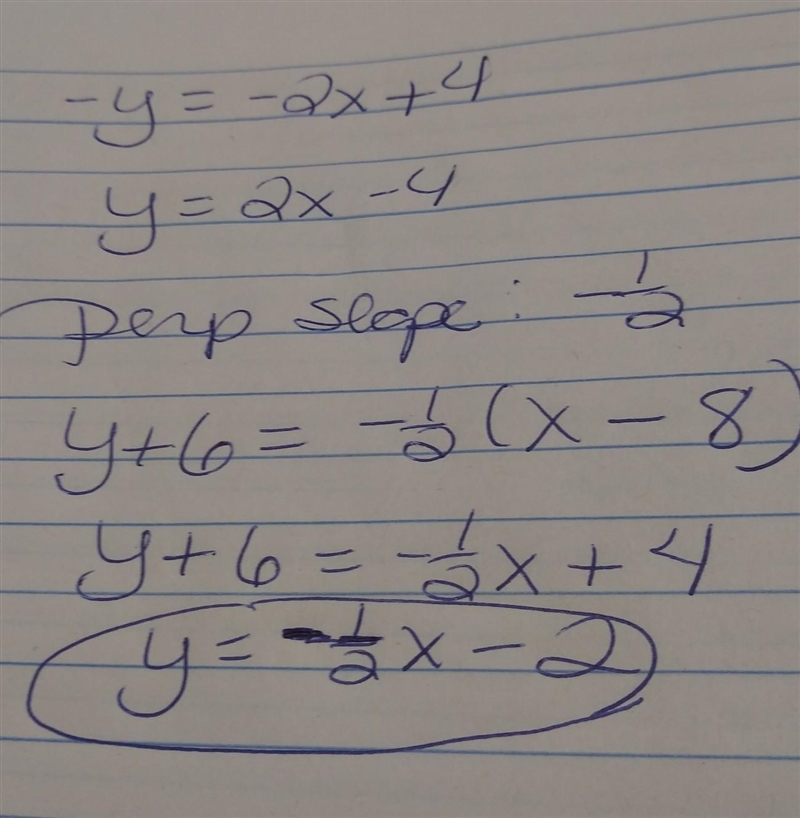 -y = -2x + 4
y = 2x - 4
perp slope: -1/2
y + 6 = -1/2 (x - 8)
y + 6 = -1/2 x + 4
y = -1/2 x - 2